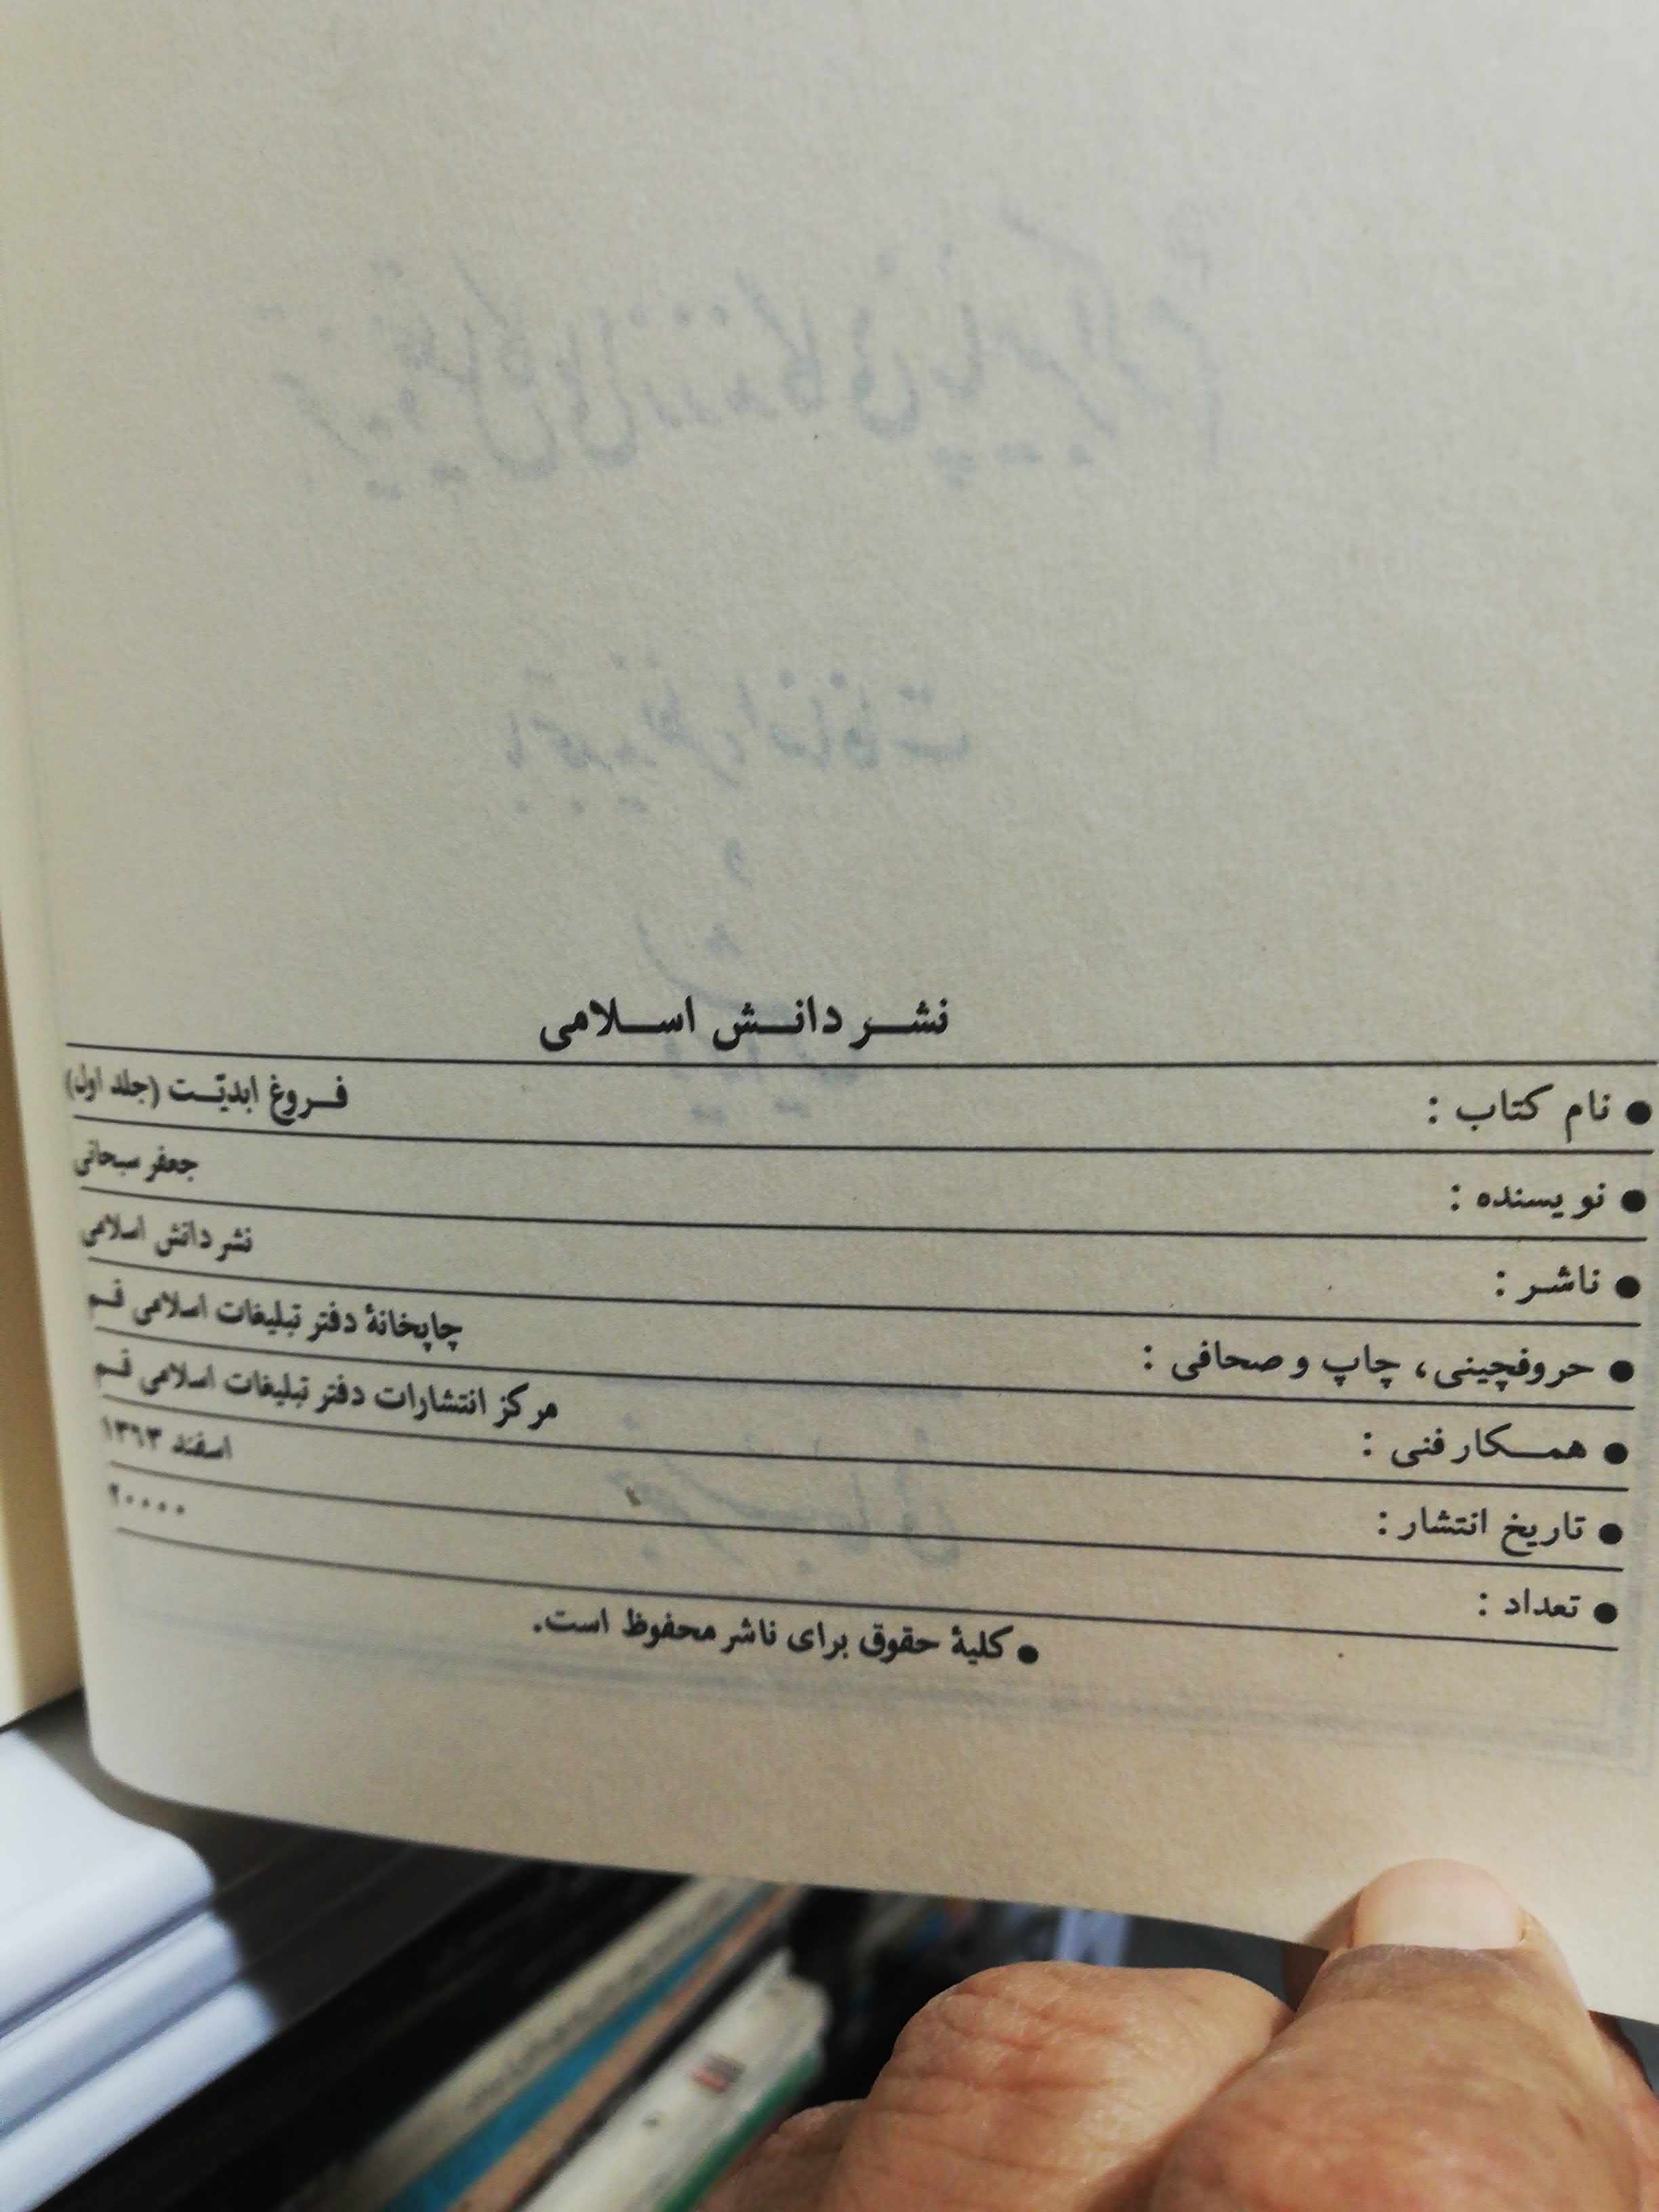 نشر دانش اسلامی
● نام کتاب : فروغ ابدیّت (جلد اول)
● نویسنده : جعفر سبحانی
● ناشر : نشر دانش اسلامی
● حروفچینی، چاپ و صحافی : چاپخانهٔ دفتر تبلیغات اسلامی قم
● همکار فنی : مرکز انتشارات دفتر تبلیغات اسلامی قم
● تاریخ انتشار : اسفند ۱۳۶۳
● تعداد : ۲۰۰۰۰
● کلیهٔ حقوق برای ناشر محفوظ است.